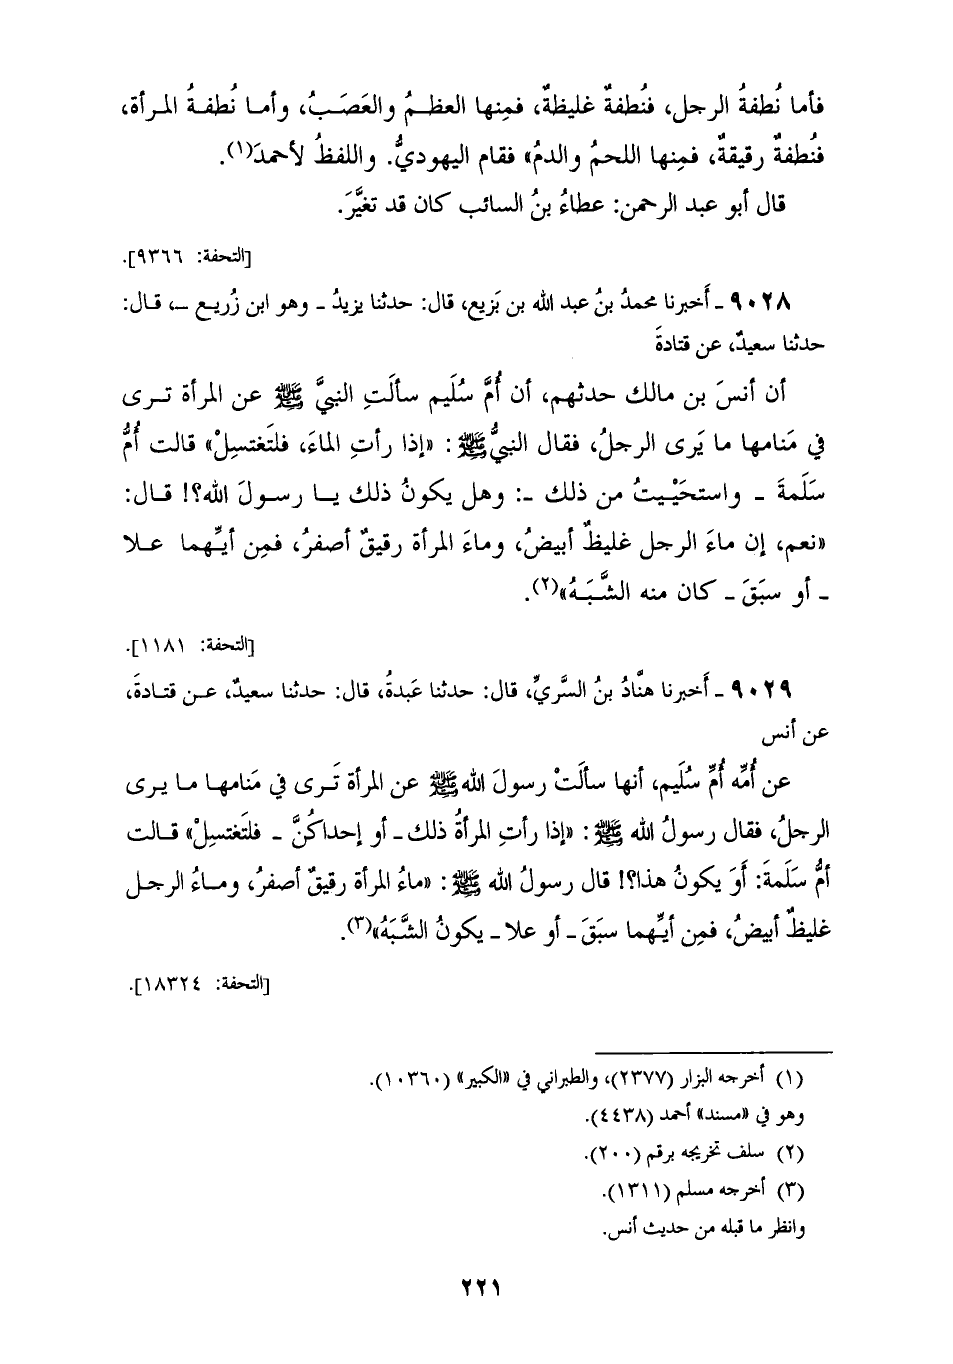 فأما نُطفةُ الرجل، فنُطفةٌ غليظةٌ، فمِنها العظمُ والعَصَبُ، وأما نُطفةُ المرأة،
فنُطفةٌ رقيقةٌ، فمِنها اللحمُ والدمُ» فقام اليهوديُّ. واللفظُ لأحمدَ(١).
قال أبو عبد الرحمن: عطاءُ بنُ السائب كان قد تغيَّرَ.
[التحفة: ٩٣٦٦].
٩٠٢٨ ـ أَخبرنا محمدُ بنُ عبد الله بن بَزيع، قال: حدثنا يزيدُ ـ وهو ابن زُريع ـ، قال:
حدثنا سعيدٌ، عن قتادةَ
أن أنسَ بن مالك حدثهم، أن أُمَّ سُلَيم سألَتِ النبيَّ ﷺ عن المرأة ترى
في مَنامها ما يَرى الرجلُ، فقال النبيُّ ﷺ: «إذا رأتِ الماءَ، فلتَغتسِلْ» قالت أُمُّ
سَلَمةَ ـ واستحَيْيتُ من ذلك ـ: وهل يكونُ ذلك يا رسولَ الله؟! قال:
«نعم، إن ماءَ الرجل غليظٌ أبيضُ، وماءَ المرأة رقيقٌ أصفرُ، فمِن أيِّهما علا
ـ أو سبَقَ ـ كان منه الشَّبَهُ»(٢).
[التحفة: ١١٨١].
٩٠٢٩ ـ أَخبرنا هنَّادُ بنُ السَّريِّ، قال: حدثنا عَبدةُ، قال: حدثنا سعيدٌ، عن قتادةَ،
عن أنس
عن أُمِّه أُمِّ سُلَيم، أنها سألَتْ رسولَ الله ﷺ عن المرأة تَرى في مَنامها ما يرى
الرجلُ، فقال رسولُ الله ﷺ: «إذا رأتِ المرأةُ ذلك ـ أو إحداكُنَّ ـ فلتَغتسِلْ» قالت
أمُّ سَلَمةَ: أوَ يكونُ هذا؟! قال رسولُ الله ﷺ: «ماءُ المرأة رقيقٌ أصفرُ، وماءُ الرجل
غليظٌ أبيضُ، فمِن أيِّهما سبَقَ ـ أو علا ـ يكونُ الشَّبَهُ»(٣).
[التحفة: ١٨٣٢٤].
(١) أخرجه البزار (٢٣٧٧)، والطبراني في «الكبير» (١٠٣٦٠).
وهو في «مسند» أحمد (٤٤٣٨).
(٢) سلف تخريجه برقم (٢٠٠).
(٣) أخرجه مسلم (٣١١).
وانظر ما قبله من حديث أنس.
٢٢١